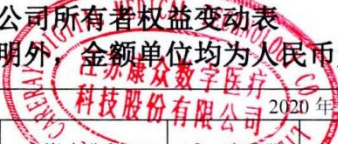 公司所有者权益变动表
明外，金额单位均为人民币
江苏康众数字医疗
科技股份有限公司
2020年
CARERAY DIGITAL MEDICAL TECHNOLOGY CO